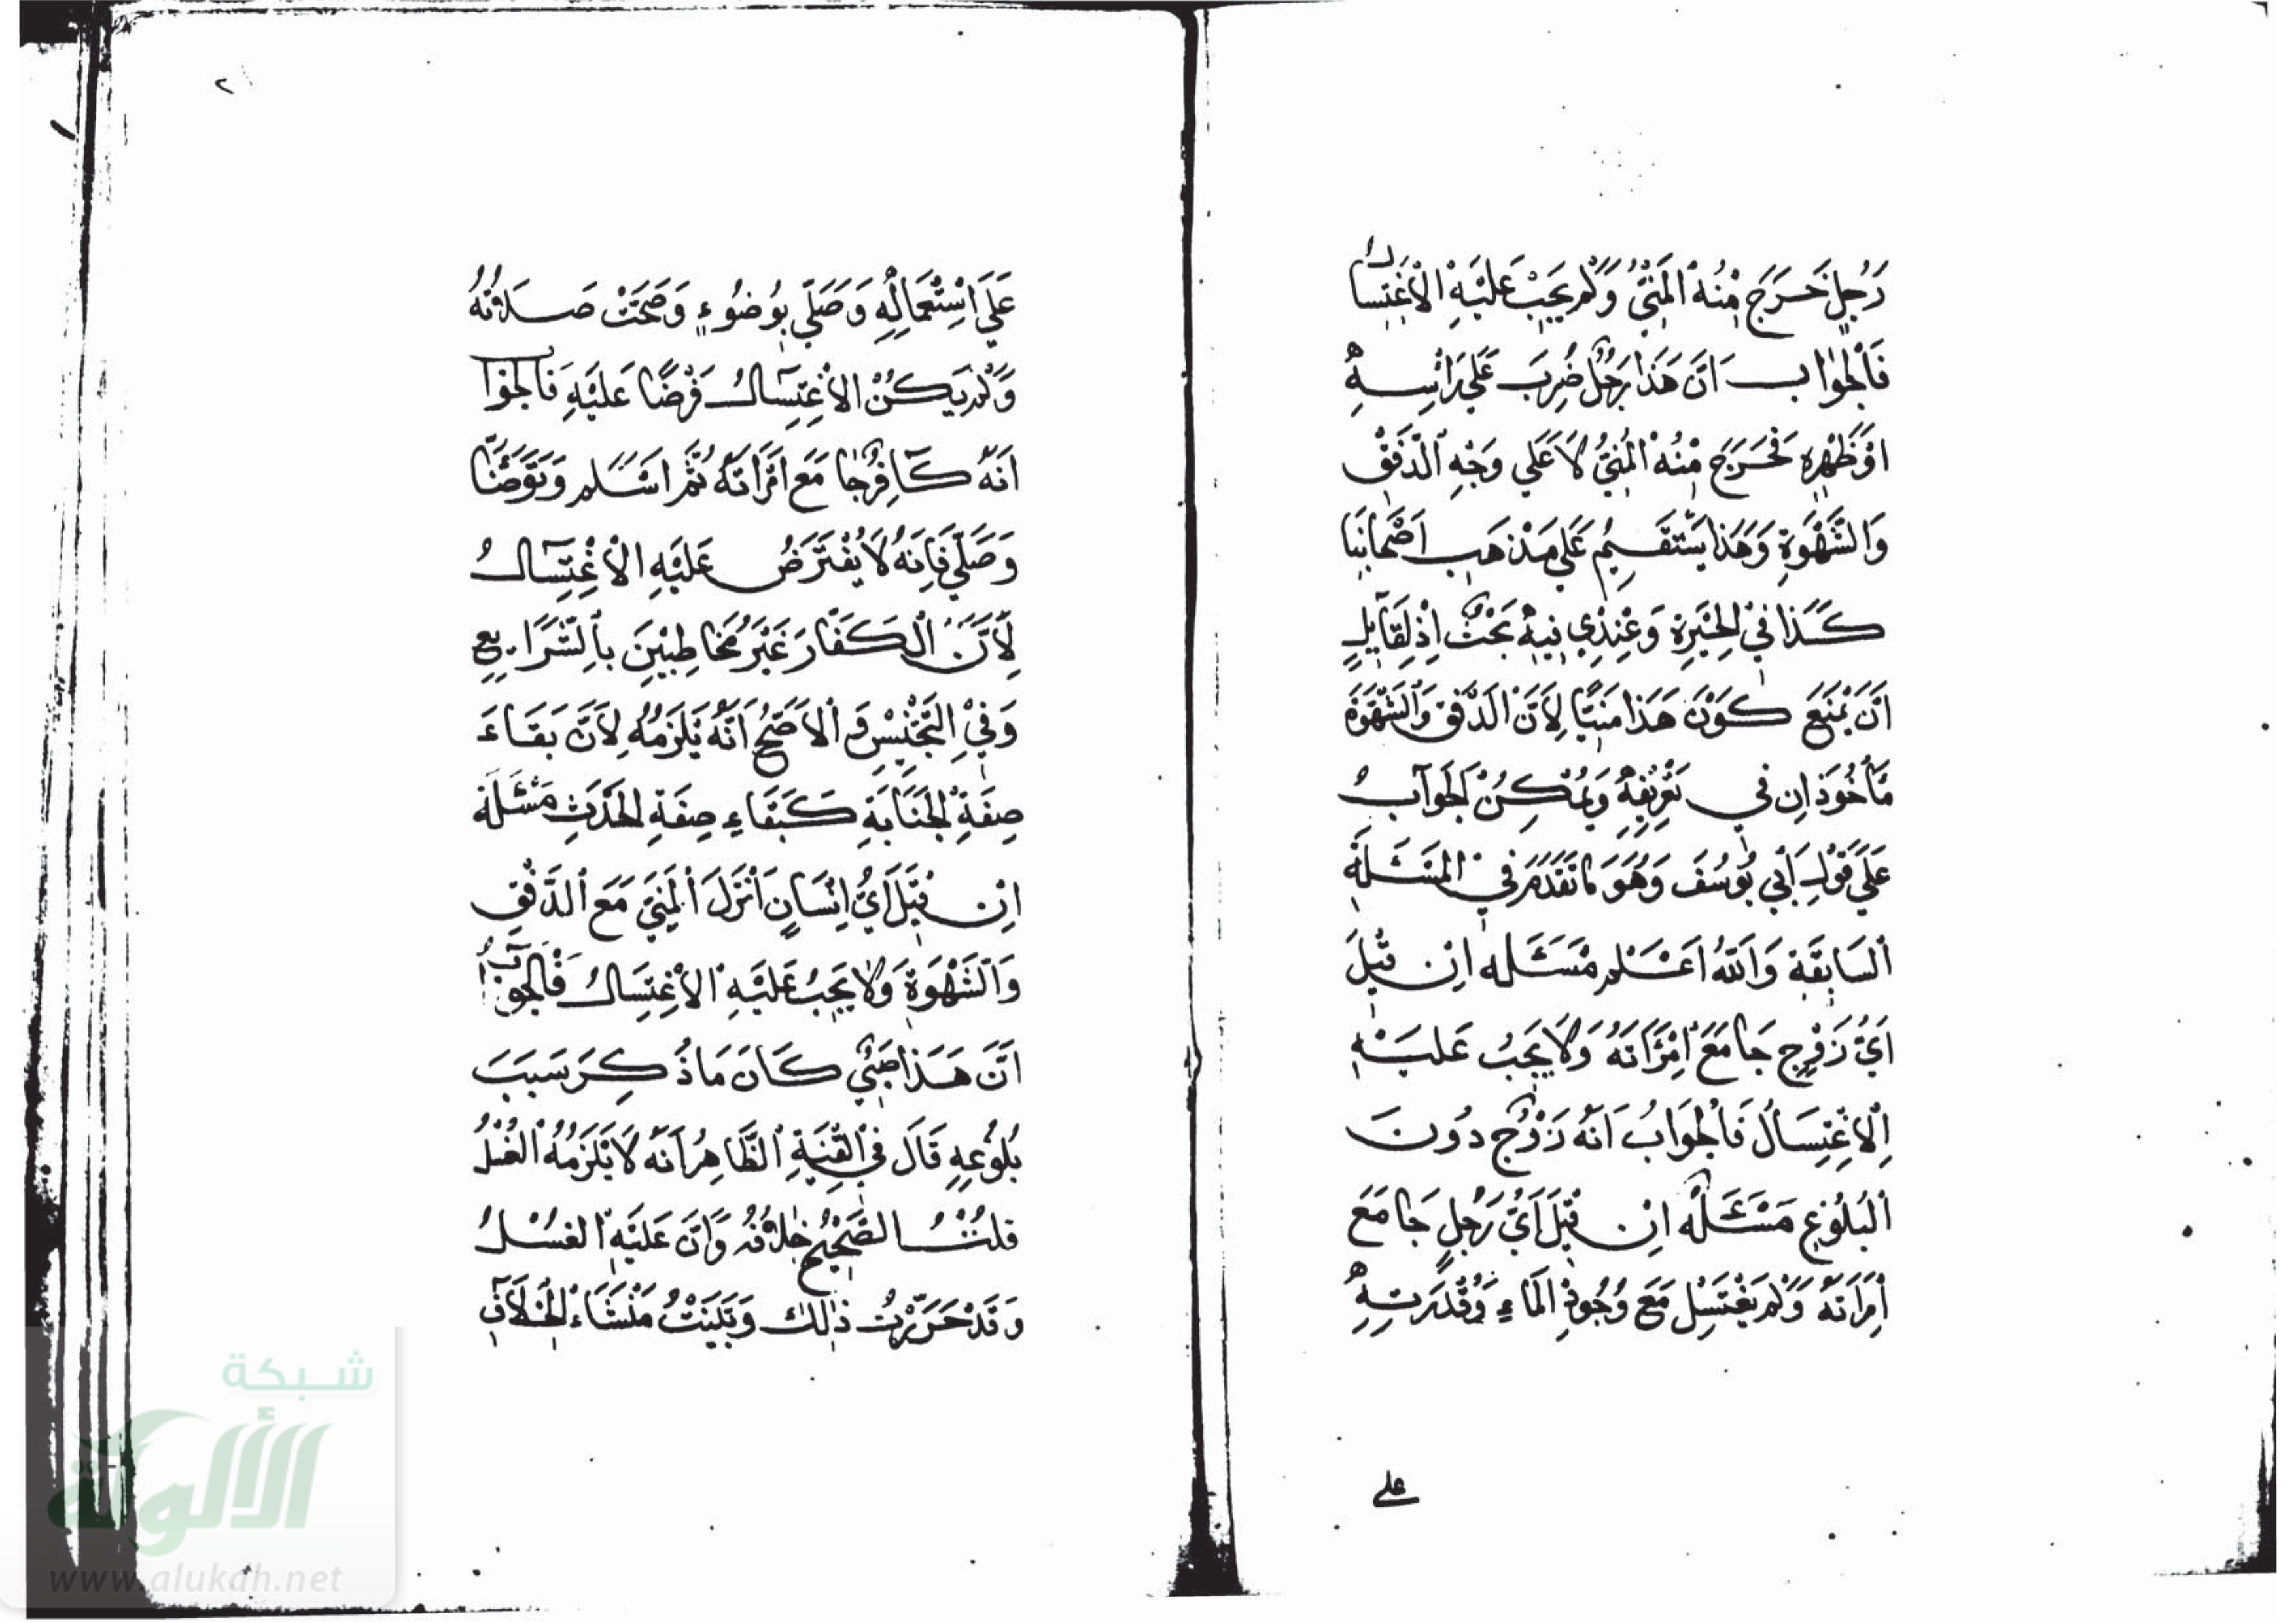 رَجُلٍ خَرَجَ مِنْهُ الْمَنِيُّ وَلَمْ يَجِبْ عَلَيْهِ الْاِغْتِسَالُ
فَالْجَوَابُ اَنَّ هَذَا رَجُلٌ ضُرِبَ عَلَي رَأْسِهِ
اَوْ ظَهْرِهِ فَخَرَجَ مِنْهُ الْمَنِيُّ لَا عَلَي وَجْهِ الدَّفْقِ
وَالشَّهْوَةِ وَهَذَا يَسْتَقِيمُ عَلَي مَذْهَبِ اَصْحَابِنَا
كَذَا فِي الْحِيرَةِ وَعِنْدِي فِيهِ بَحْثٌ اِذْ لِقَآيِلٍ
اَنْ يَمْنَعَ كَوْنَ هَذَا مَنِيًّا لِاَنَّ الدَّفْقَ وَالشَّهْوَةَ
مَأْخُوذَانِ فِي تَعْرِيفِهِ وَيُمْكِنُ الْجَوَآبُ
عَلَي قَوْلِ اَبِي يُوسُفَ وَهُوَ مَا تَقَدَّمَ فِي الْمَسْئَلَةِ
السَّابِقَةِ وَاللَّهُ اَعْلَمُ مَسْئَلَه اِنْ قِيلَ
اَيُّ زَوْجٍ جَامَعَ امْرَأَتَهُ وَلَا يَجِبُ عَلَيْهِ
الْاِغْتِسَالُ فَالْجَوَابُ اَنَّهُ زَوْجٌ دُونَ
الْبُلُوغِ مَسْئَلَه اِنْ قِيلَ اَيُّ رَجُلٍ جَامَعَ
اَمْرَاتَهُ وَلَمْ يَغْتَسِلْ مَعَ وُجُودِ الْمَاءِ وَقُدْرَتِهِ
علي
٢
عَلَي اسْتِعْمَالِهِ وَصَلَّي بِوُضُوءٍ وَصَحَّتْ صَلَاتُهُ
وَلَمْ يَكُنْ الْاِغْتِسَالُ فَرْضًا عَلَيْهِ فَالْجَوَا
اَنَّهُ كَافِرٌ جَامَعَ امْرَاَتَهُ ثُمَّ اَسْلَمَ وَتَوَضَّأَ
وَصَلَّي فَاِنَّهُ لَا يُفْتَرَضُ عَلَيْهِ الْاِغْتِسَالُ
لِاَنَّ الْكُفَّارَ غَيْرُ مُخَاطَبِينَ بِالشَّرَايِعِ
وَفِي التَّجْنِيسِ وَالْاَصَحُّ اَنَّهُ يَلْزَمُهُ لِاَنَّ بَقَاءَ
صِفَةِ الْجَنَابَةِ كَبَقَاءِ صِفَةِ الْحَدَثِ مَسْئَلَة
اِنْ قِيلَ اَيُّ اِنْسَانٍ اَنْزَلَ الْمَنِيَّ مَعَ الدَّفْقِ
وَالشَّهْوَةِ وَلَا يَجِبُ عَلَيْهِ الْاِغْتِسَالُ فَالْجَوَابُ
اَنَّ هَذَا صَبِيٌّ كَانَ مَا ذُكِرَ سَبَبَ
بُلُوغِهِ قَالَ فِي الْقُنْيَةِ الظَّاهِرُ اَنَّهُ لَا يَلْزَمُهُ الْغُسْلُ
قُلْتُ الصَّحِيحُ خِلَافُهُ وَاَنَّ عَلَيْهِ الْغُسْلُ
وَقَدْ حَرَّرْتُ ذَلِكَ وَبَيَّنْتُ مَنْشَاءَ الْخِلَافِ
شبكة
الألوكة
www.alukah.net